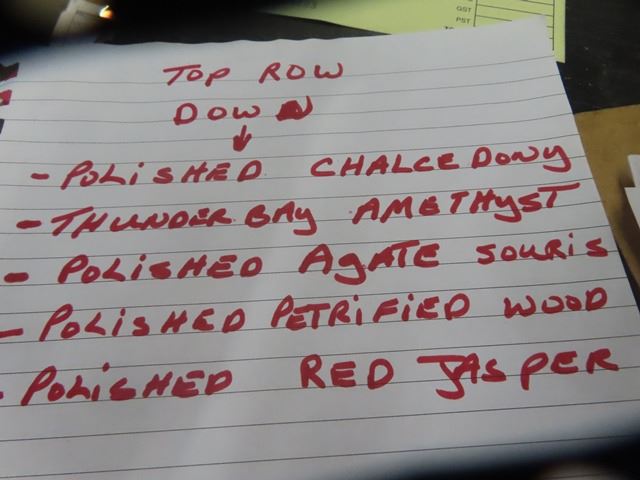 GST
PST
TOP ROW
DOWN
↓
- POLiSHED CHALCEDONY
- THUNDER BAY AMETHYST
- POLiSHED AgATE SOURIS
- POLiSHED PETRiFiED WOOD
- POLiSHED RED JASPER